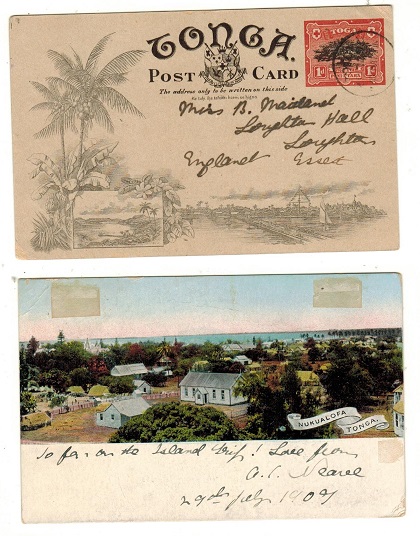 TONGA.
POST CARD
The address only to be written on this side
TOGA
1d 1d
Miss B. Maitland
Loughton Hall
Loughton
England Essex
NUKUALOFA
TONGA.
So far on the Island trip! Love from
29th July 1909